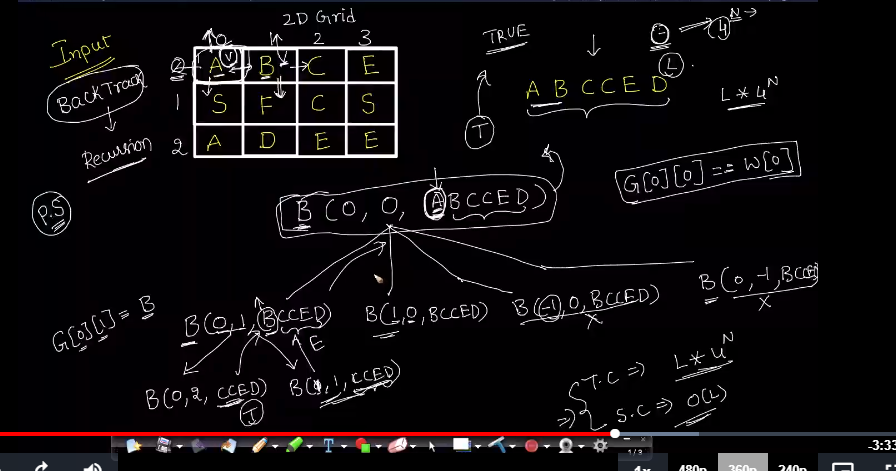 2D Grid
Input
BackTrack
Recursion
P.S
0 2 3
0 A V B C E
1 S F C S
2 A D E E
TRUE
T
4^N
L
A B C C E D
L * 4^N
G[0][0] == W[0]
B (0, 0, ABCCED)
G[0][1] = B
B (0, 1, BCCED)
B (1, 0, BCCED)
B (-1, 0, BCCED)
X
B (0, -1, BCCED)
X
E
B (0, 2, CCED)
T
B (1, 1, CCED)
T.C => L * 4^N
S.C => O(L)
1/3
-3:33
1x 480p 360p 240p